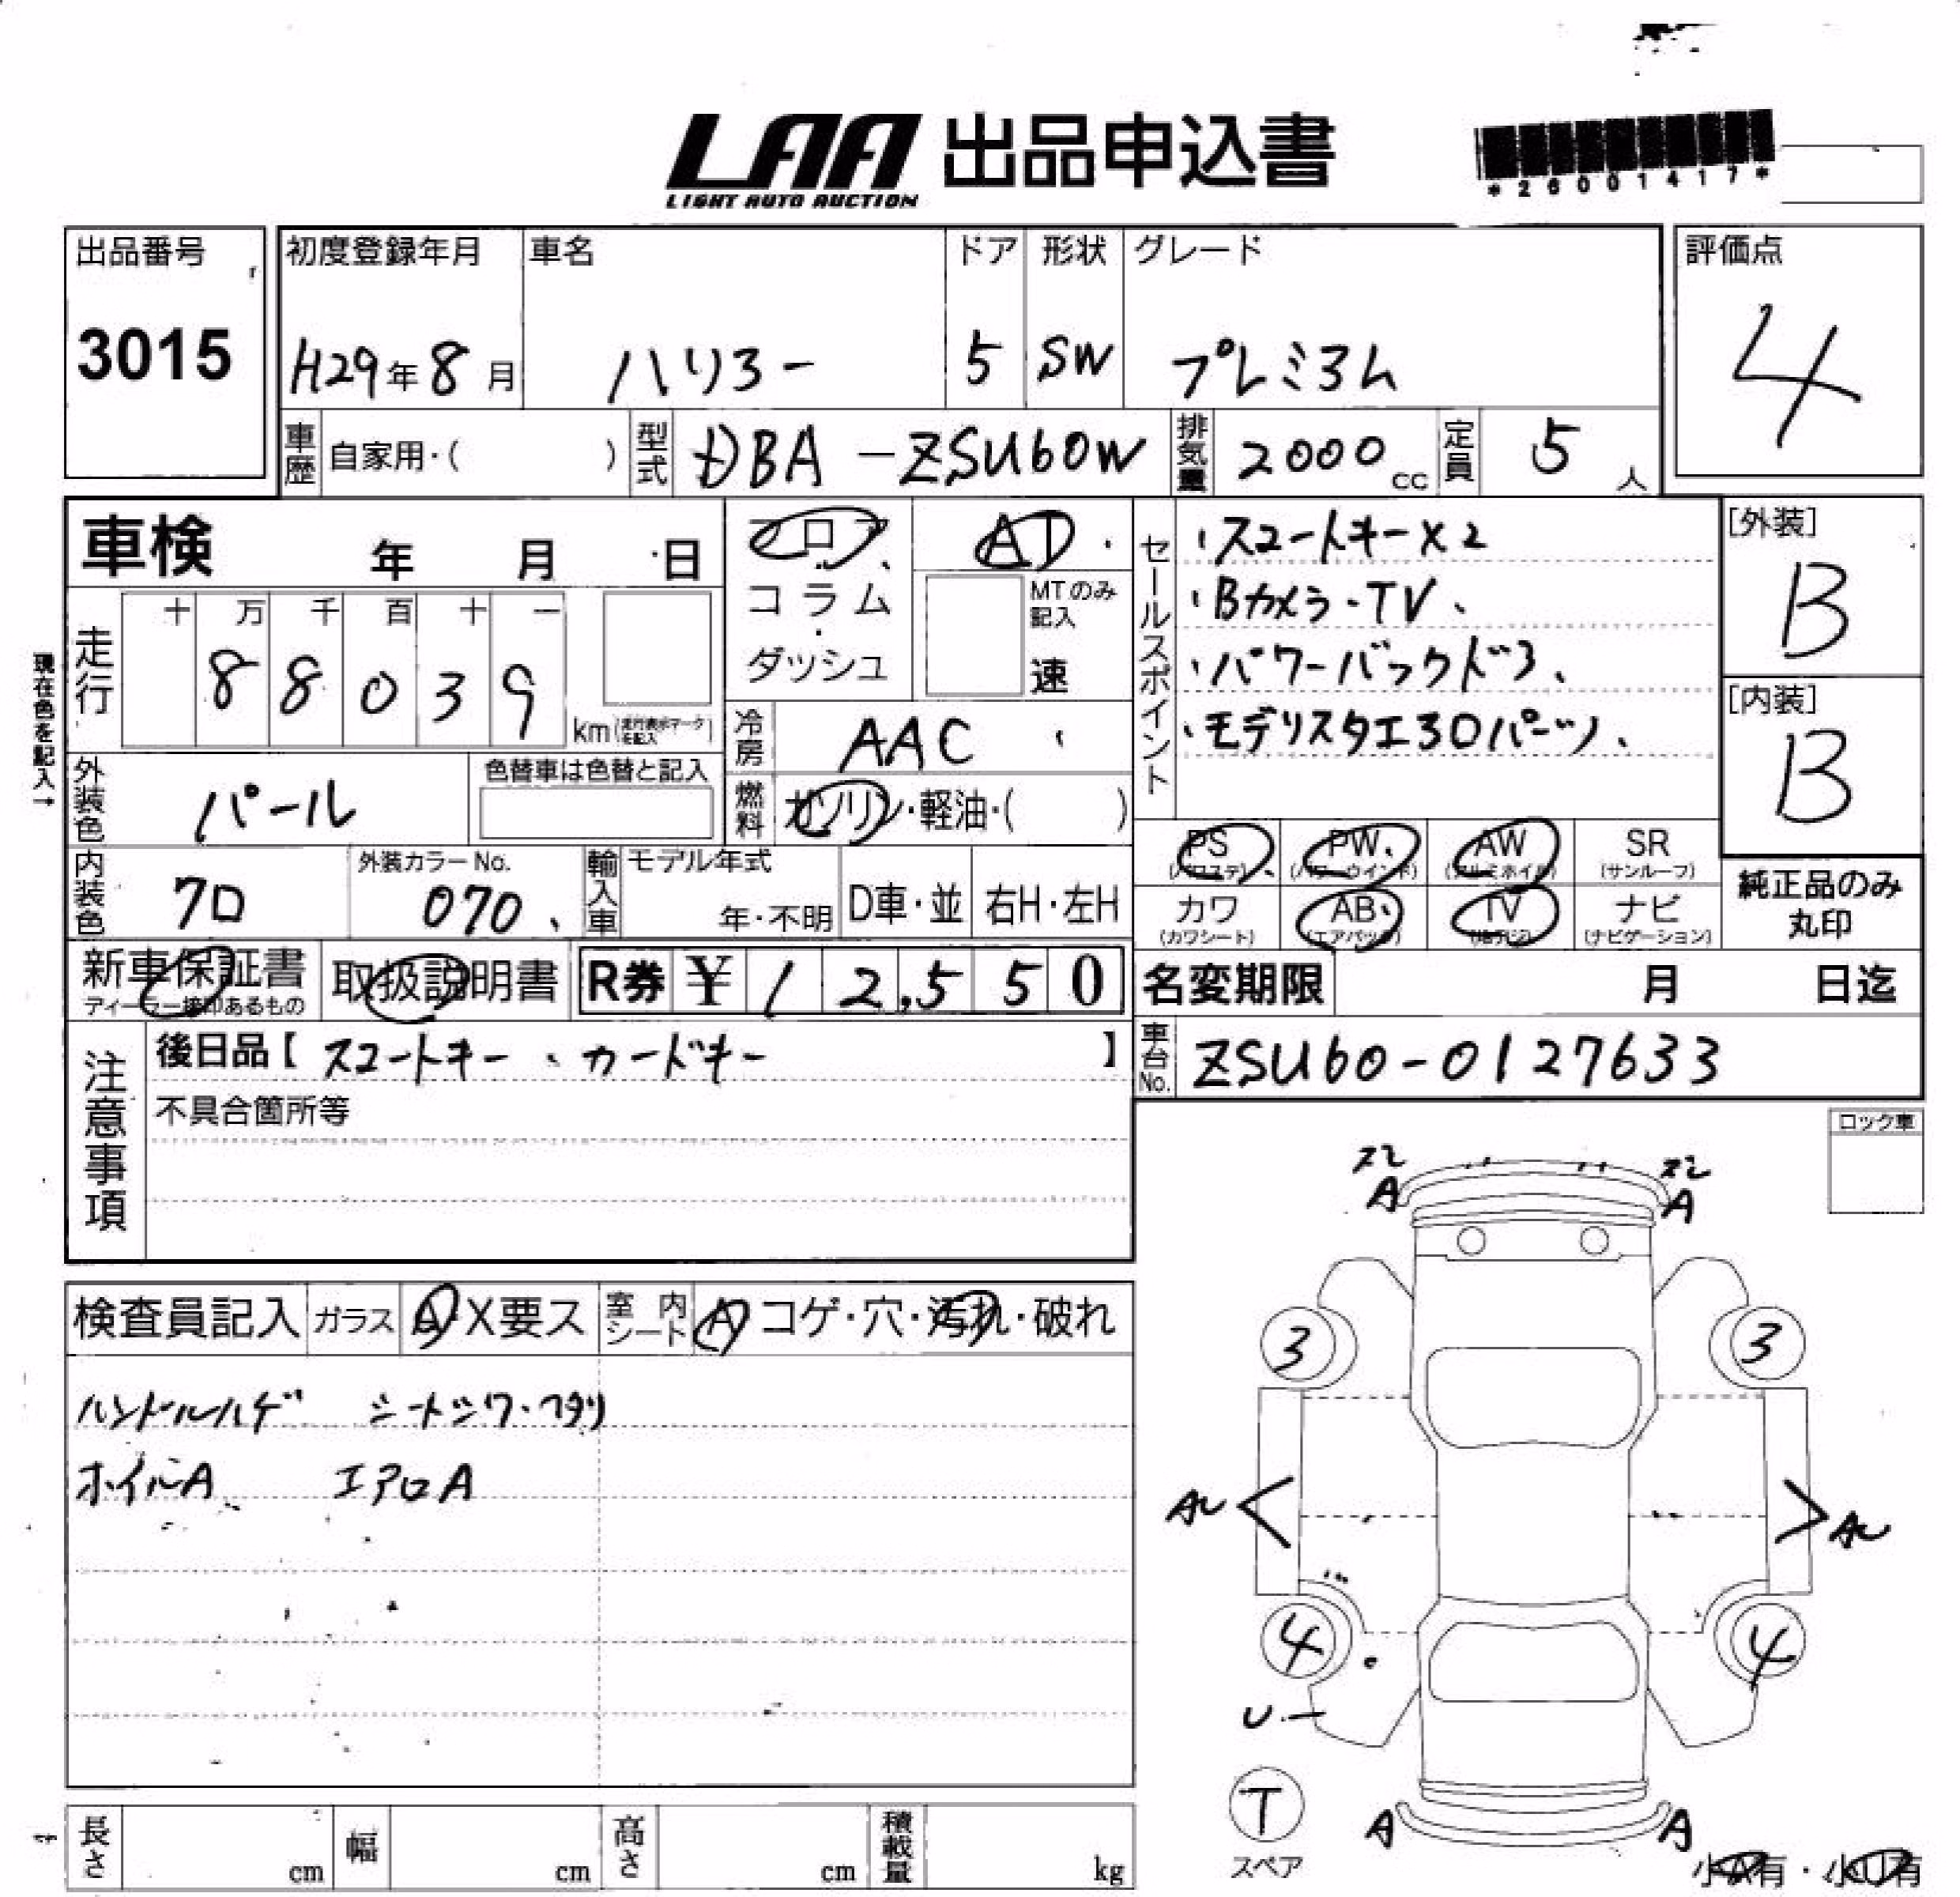 LAA 出品申込書
LIGHT AUTO AUCTION
*26001417*
出品番号
3015
初度登録年月
H29年8月
車名
ハリアー
ドア
5
形状
SW
グレード
プレミアム
評価点
4
車歴 自家用・( )
型式 DBA-ZSU60W
排気量 2000cc
定員 5人
車検 年 月 日
フロア
コラム
ダッシュ
AT
MTのみ記入
速
セールスポイント
・スマートキー×2
・Bカメラ・TV、
・パワーバックドア、
・モデリスタエアロパーツ、
[外装]
B
[内装]
B
現在色を記入→
走行
十 万 千 百 十 一
88039
km(走行表示マークを記入)
冷房 AAC
外装色 パール
色替車は色替と記入
燃料 ガソリン・軽油・( )
PS (パワステ)
PW (パワーウインド)
AW (アルミホイル)
SR (サンルーフ)
カワ (カワシート)
AB (エアバック)
TV (地デジ)
ナビ (ナビゲーション)
純正品のみ
丸印
内装色 クロ
外装カラーNo.
070
輸入車
モデル年式
年・不明
D車・並
右H・左H
新車保証書
ディーラー捺印あるもの
取扱説明書
R券 ¥12,550
名変期限 月 日迄
車台No. ZSU60-0127633
注意事項
後日品【スマートキー、カードキー】
不具合箇所等
ロック車
検査員記入
ガラス A・X要ス
室内シート A コゲ・穴・汚れ・破れ
ハンドルハゲ シートシワ・ヘタリ
ホイルA エアロA
スレ
A
スレ
A
3
3
AU
AU
4
4
U
T
スペア
A
A
小A有・小U有
長さ cm
幅 cm
高さ cm
積載量 kg